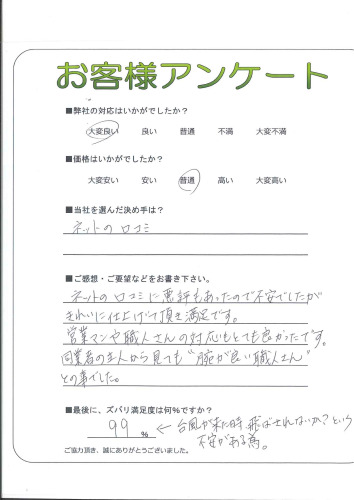 お客様アンケート
■弊社の対応はいかがでしたか?
大変良い 良い 普通 不満 大変不満
■価格はいかがでしたか?
大変安い 安い 普通 高い 大変高い
■当社を選んだ決め手は?
ネットの口コミ
■ご感想・ご要望などをお書き下さい。
ネットの口コミに悪評もあったので不安でしたが
きれいに仕上げて頂き満足です。
営業マンや職人さんの対応もとても良かったです。
同業者の主人から見ても“腕が良い職人さん”
との事でした。
■最後に、ズバリ満足度は何%ですか?
99 % ← 台風が来た時飛ばされないか?という
不安がある為。
ご協力頂き、誠にありがとうございました。